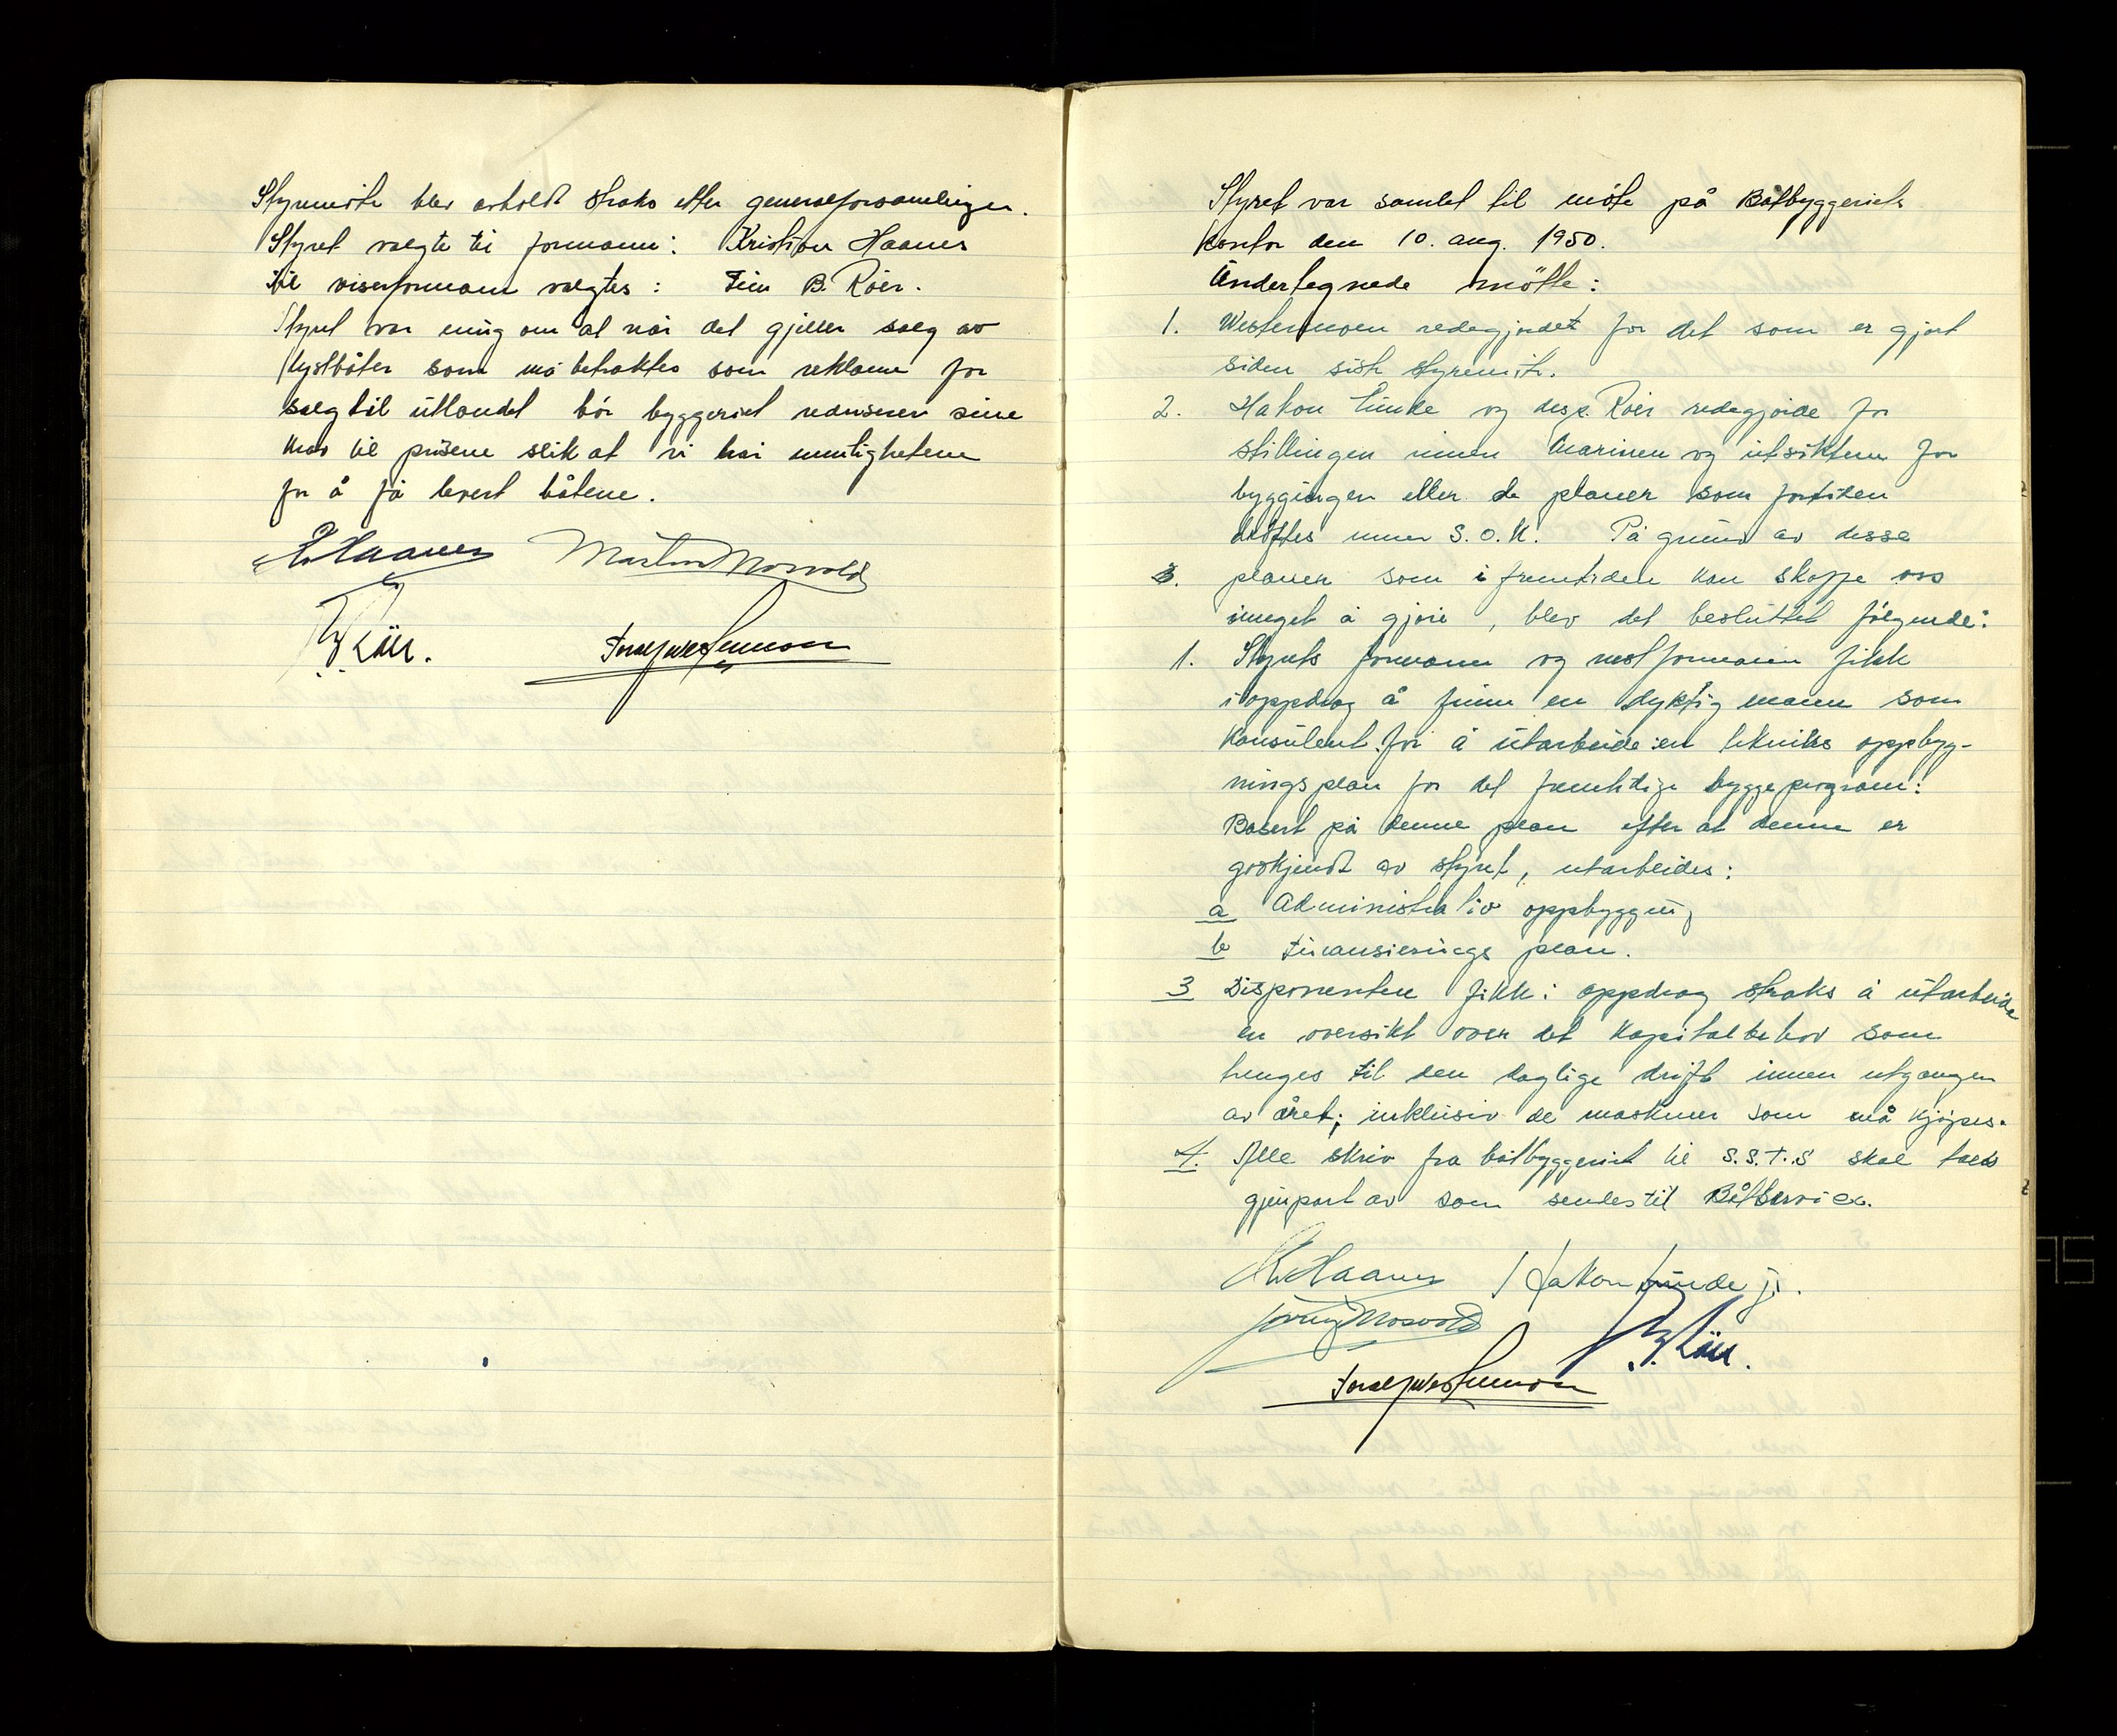 Styremöte blev avholdt straks etter generalforsamlingen.
Styret valgte til formann: Kristian Haanes
til viseformann valgtes: Finn B. Röer.
Styret var enig om at når det gjeller salg av
lystbåter som må betraktes som reklame for
salg til utlandet bör byggeriet redusere sine
krav til prisene slik at vi har muligheten
for å få levert båtene.
K. Haanes Martin Mosvold
B. Röer.
Styret var samlet til möte på Båtbyggeriets
kontor den 10. aug. 1950.
Undertegnede mötte:
1. Westermoen redegjordet for det som er gjort
siden siste styremöte.
2. Hakon Lunde og disp. Röer redegjorde for
stillingen innen Marinen og utsiktene for
byggingen eller de planer som fortiden
dröftes innen S.O.K. På grunn av disse
3. planer som i fremtiden kan skaffe oss
meget å gjöre, blev det besluttet fölgende:
1. Styrets formann og nestformann fikk
i oppdrag å finne en dyktig mann som
konsulent for å utarbeide en teknisk oppbyg-
ningsplan for det fremtidige byggeprogram:
Basert på denne plan efter at denne er
godkjendt av styret, utarbeides:
a Administrativ oppbygging
b Finansierings plan.
3 Disponenten fikk i oppdrag straks å utarbeide
en oversikt over det kapitalbehov som
trenges til den daglige drift innen utgangen
av året; inklusiv de maskiner som må kjöpes.
4. Alle skriv fra båtbyggeriet til S.S.T.S skal taes
gjenpart av som sendes til Båtservice.
K. Haanes Hakon Lunde jr.
Mosvold
B. Röer.